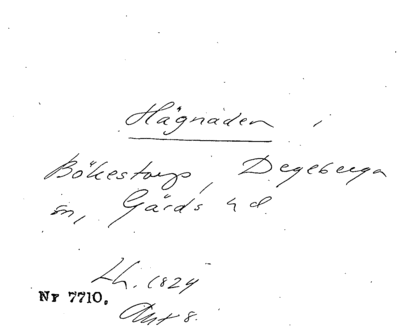 Hägnaden i
Bökestorp, Degeberga
sn, Gärds hd
Lh. 1824
Nr 7710.
Akt 8.